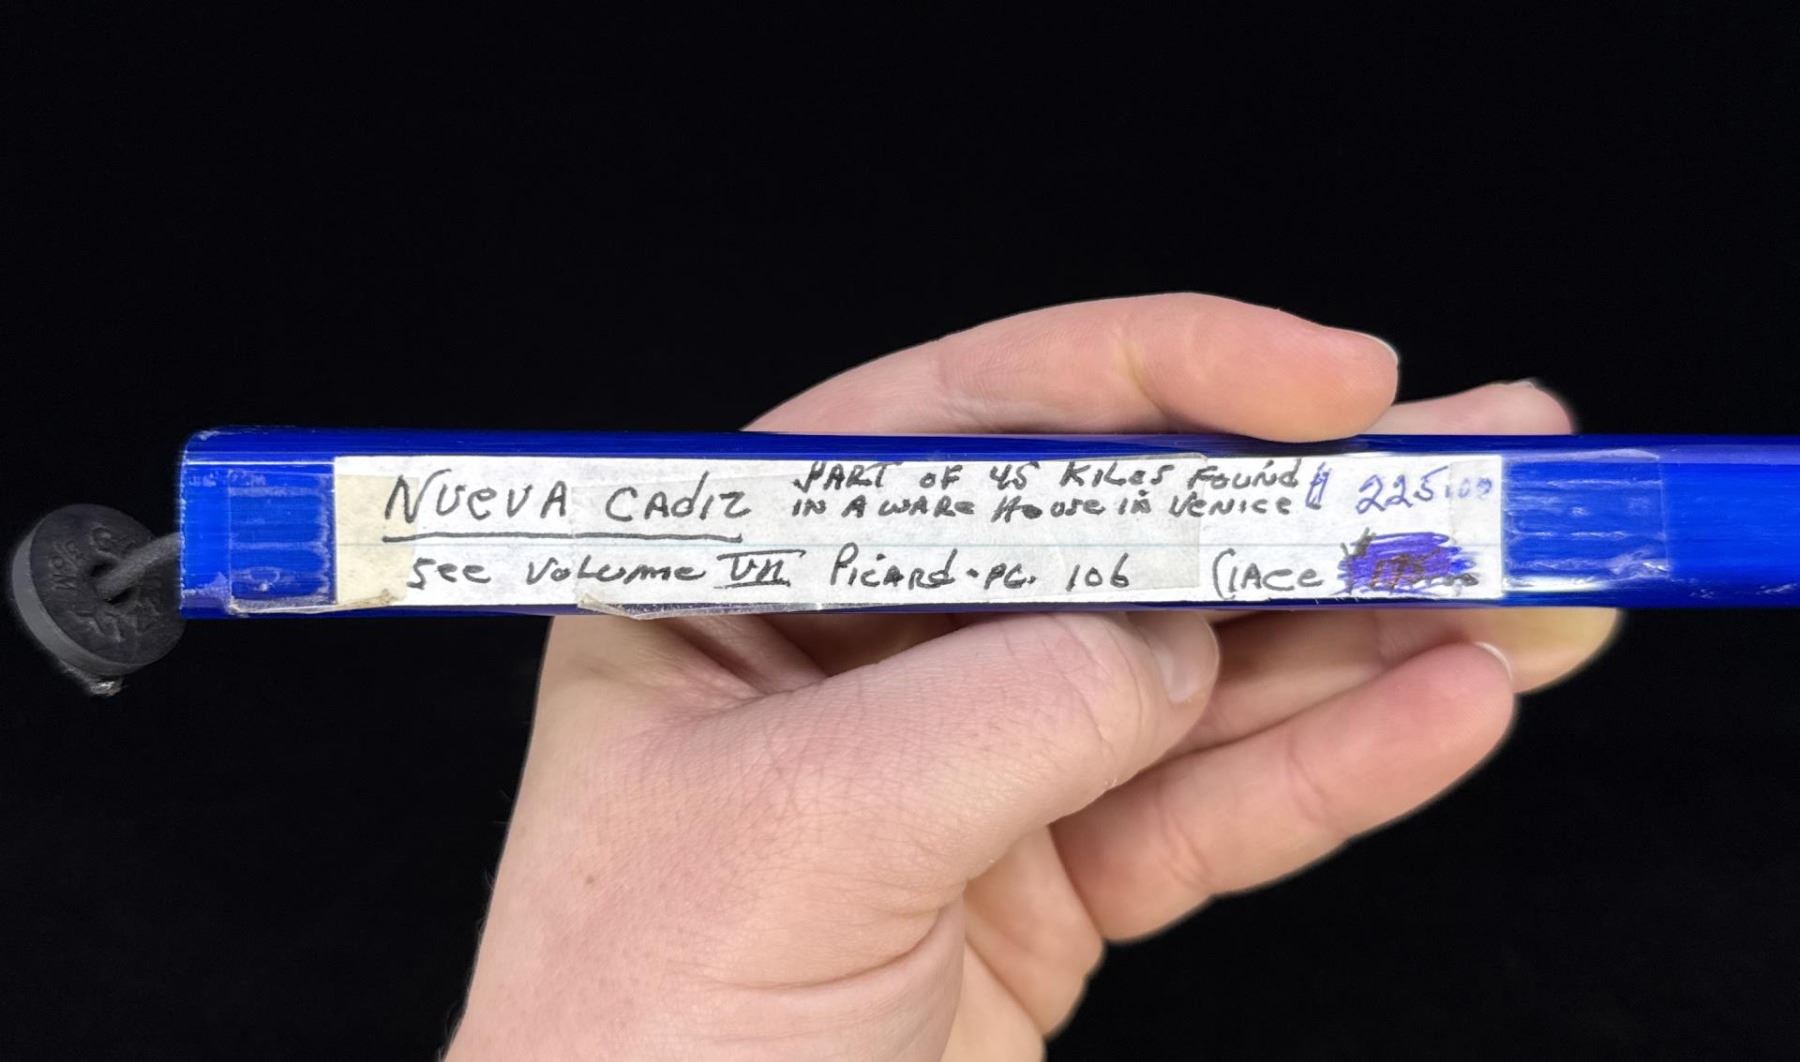 NUEVA CADIZ
PART OF 45 KILOS FOUND
IN A WARE HOUSE IN VENICE
$ 225.00
see Volume VII Picard - PG. 106